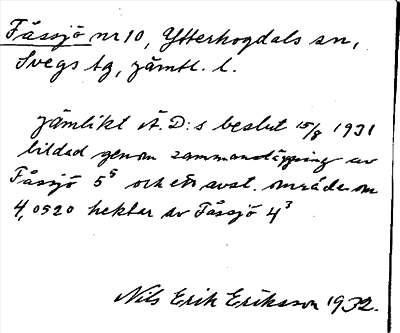 Fåssjö nr 10, Ytterhogdals sn,
Svegs tg, Jämtl. l.
Jämlikt Ä.D:s beslut 15/8 1931
bildad genom sammanläggning av
Fåssjö 5⁵ och ett avst. område om
4,0520 hektar av Fåssjö 4³
Nils Erik Eriksson 1932.